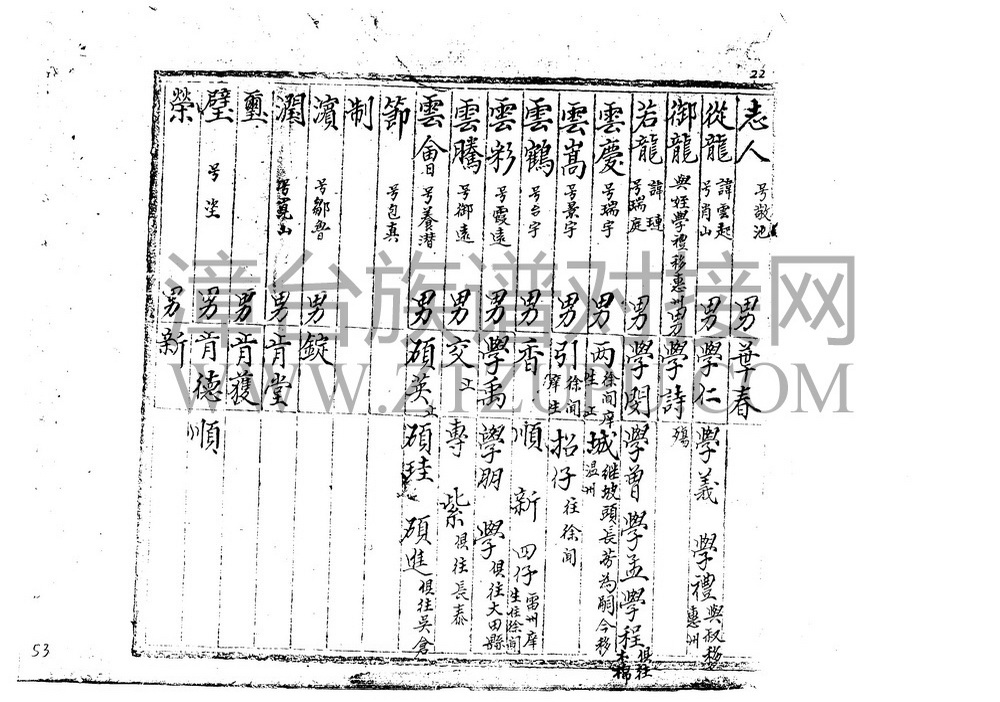 22
老人 号敬池 男 華春
從龍 諱雲起 号肖山 男 學仁 學義 學禮 與叔移惠州
御龍 與姪學禮移惠州 男 學詩 殤
若龍 諱璉 号瑞庭 男 學閔 學曾 學孟 學程 俱往
雲慶 号瑞宇 男 兩 徐聞庠生 城 继坡頭長芳為嗣今移温州
雲嵩 号景宇 男 引 徐聞庠生 招仔 往徐聞
雲鶴 号台宇 男 香 順 新 四仔 雷州庠生住徐聞
雲彩 号霞遠 男 學禹 學朋 學 俱往大田縣
雲騰 号御遠 男 交 專 紫 俱往長泰
雲會 号養潜 男 碩英 碩珪 碩進 俱往吴倉
節 号包真
制
濱 号鄒魯 男 錠
潤 号寬山 男 肯堂
璽 男 肯獲
璧 号坐 男 肯德 順
榮 男 新
53
漳台族谱对接网
WWW.ZTZUPU.COM